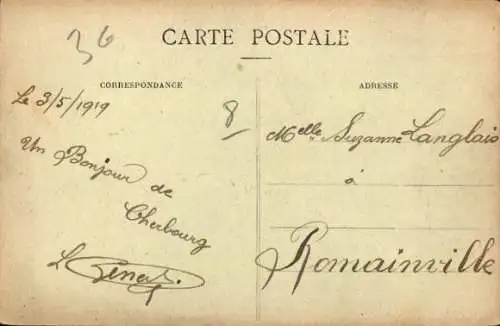 36
CARTE POSTALE
CORRESPONDANCE
Le 3/5/1919
Un Bonjour de
Cherbourg
L
8
ADRESSE
Melle Suzanne Langlais
à
Romainville